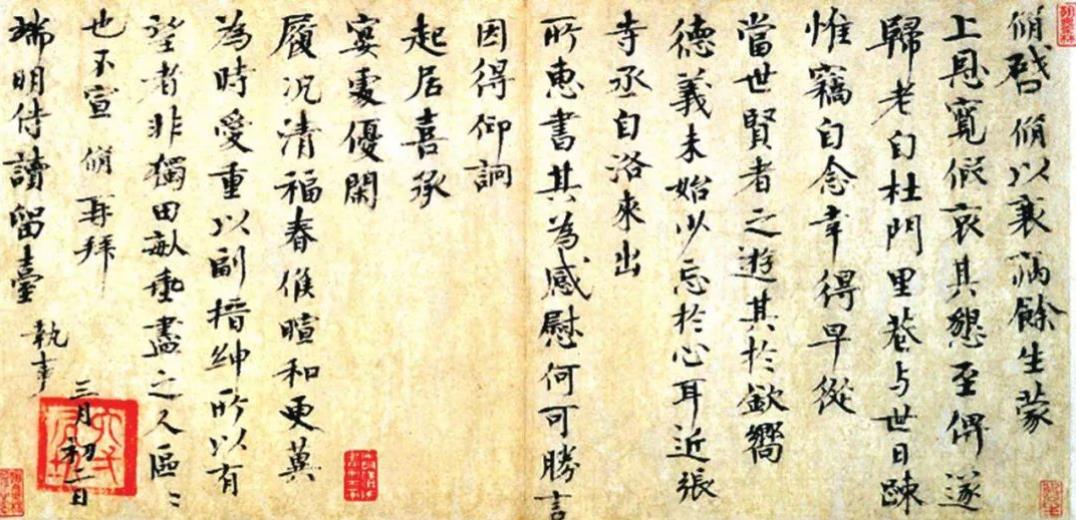 脩啓 脩以衰病餘生蒙
上恩寬假哀其懇至俾遂
歸老自杜門里巷与世日踈
惟竊自念幸得早從
當世賢者之遊其於欽嚮
德義未始少忘於心耳近張
寺丞自洛來出
所惠書其為感慰何可勝言
因得仰詗
起居喜承
宴處優閑
履況清福春候暄和更冀
為時愛重以副搢紳所以有
望者非獨田畝垂盡之人區〻
也不宣 脩再拜
端明侍讀留臺 執事
三月初二日